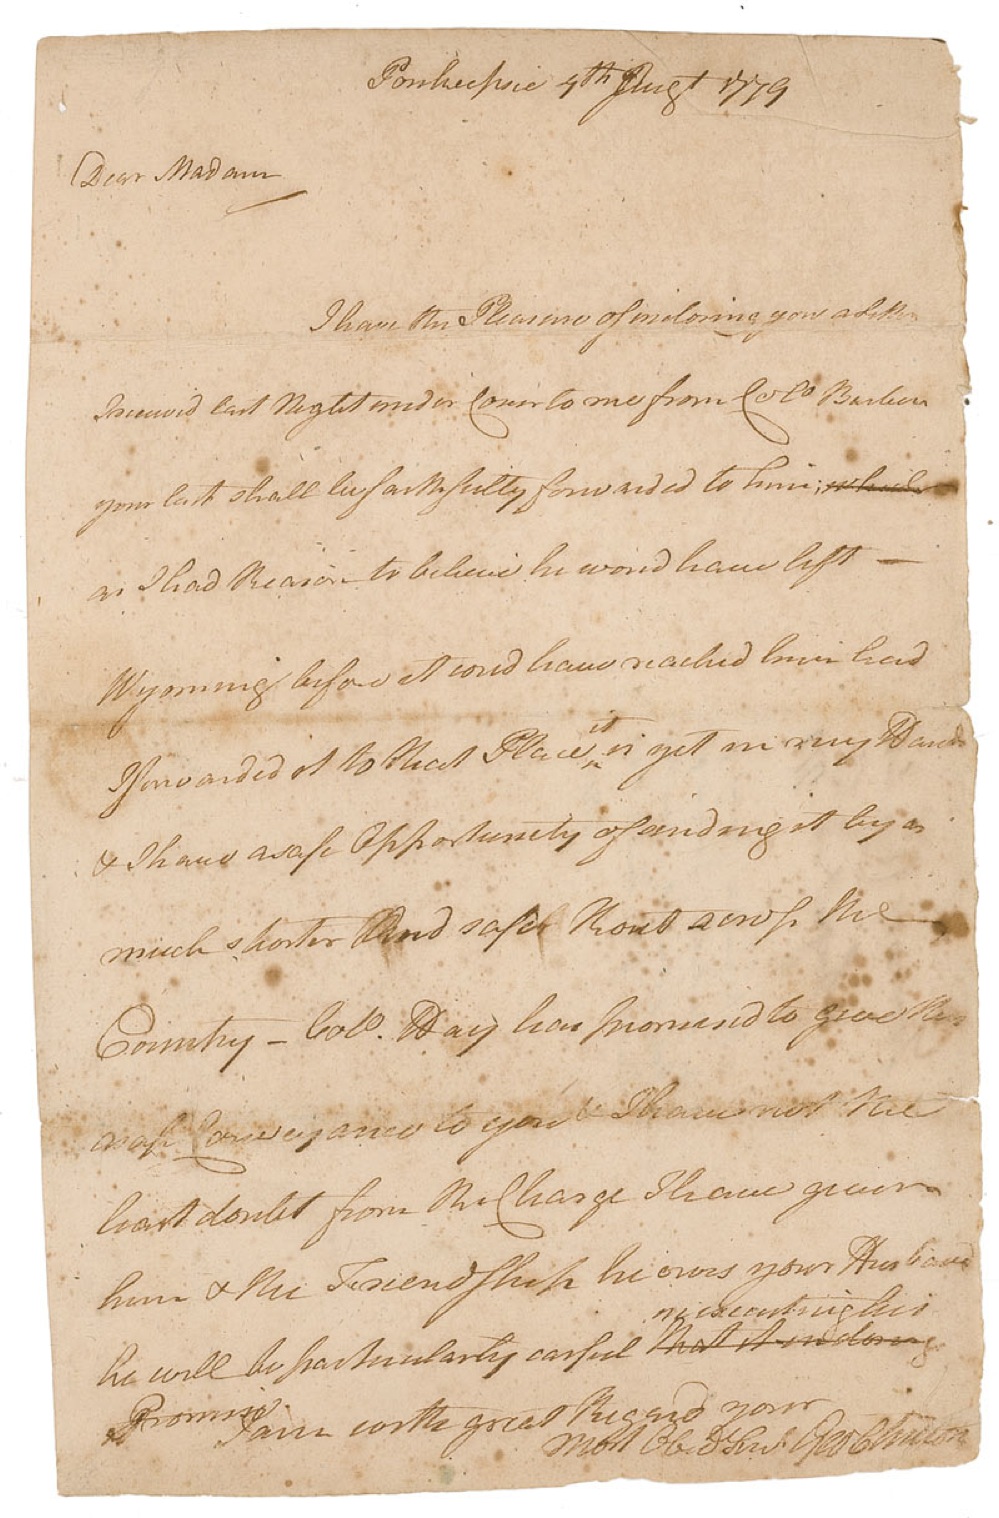 Poukeepsie 4th Augt 1779
Dear Madam
I have the Pleasure of inclosing you a Letter
I received last Night under Cover to me from Colo Barber
your last shall be faithfully forwarded to him; which
as I had Reason to believe he woud have left —
Wyoming before it coud have reached him had
I forwarded it to that Place it is yet in my Hands
& I have a safe Opportunity of sending it by a
much shorter And safer Rout across the
Country – Colo. Hay has promised to give this
a safe Conveyance to you & I have not the
least doubt from the Charge I have given
him & the Friendship he owes your Husband
in executing his
he will be particularly carful that it indoing
Promise.
I am with great Regard your
Most Obedt Servt Geo Clinton